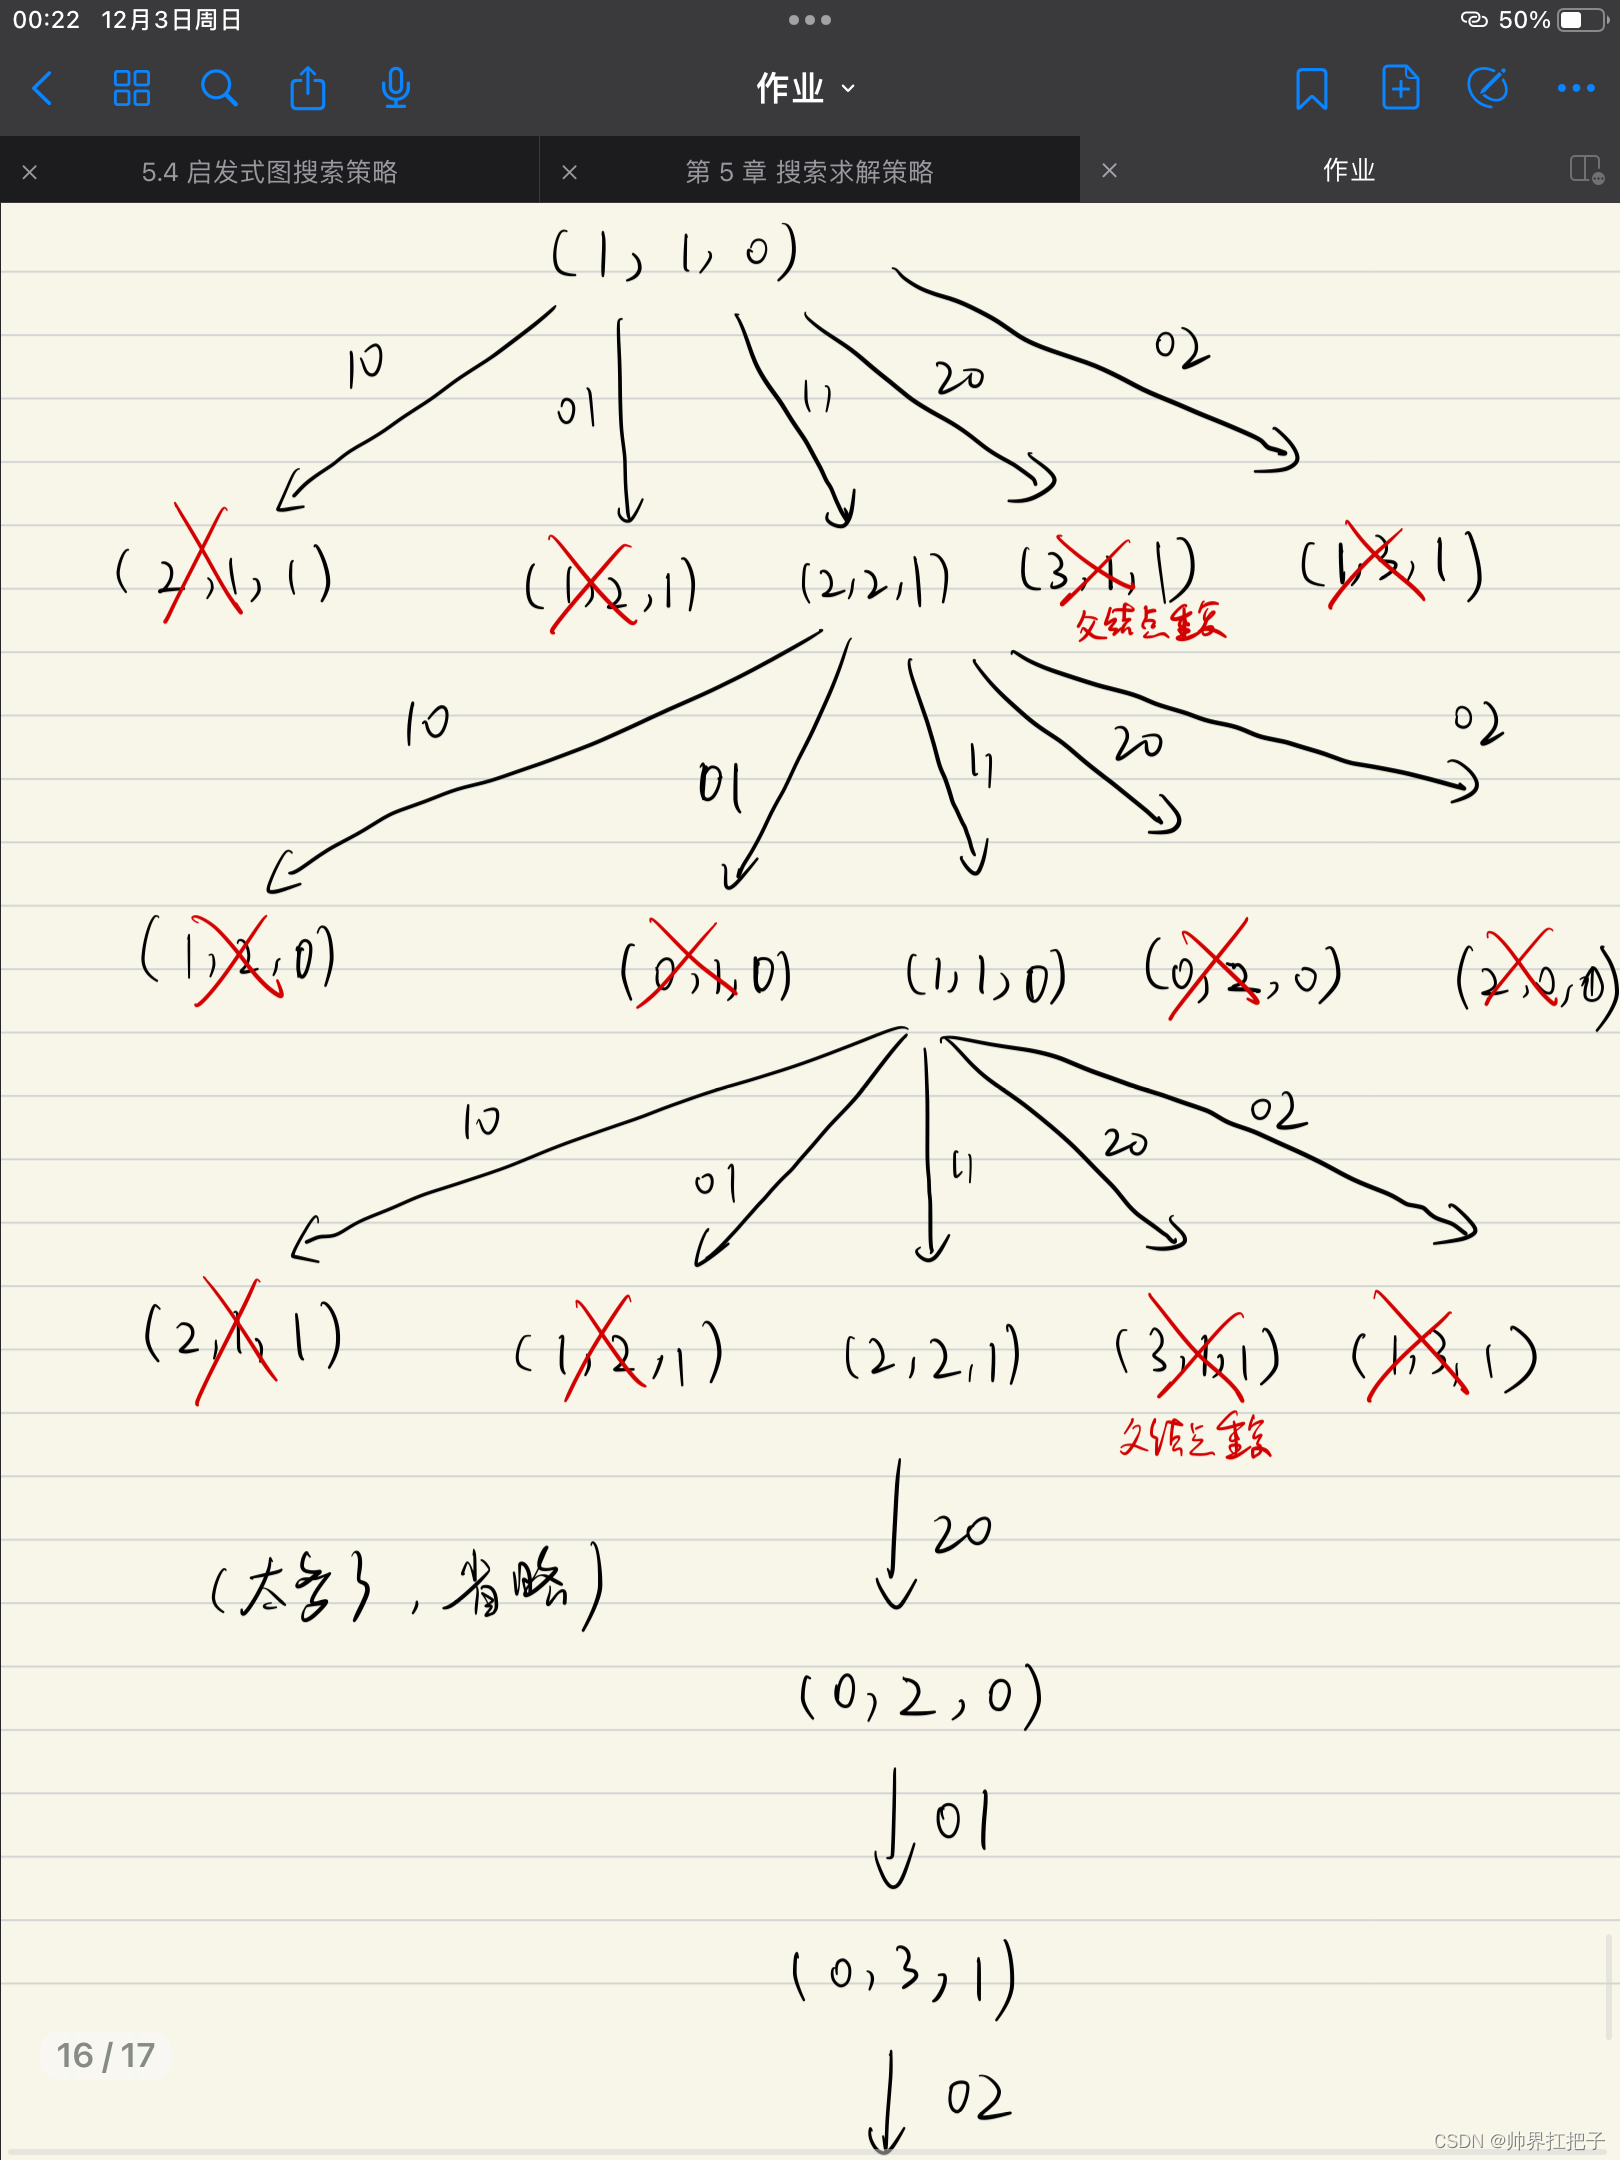 00:22 12月3日周日 50%
作业
5.4 启发式图搜索策略 第 5 章 搜索求解策略 作业
(1, 1, 0)
10 01 11 20 02
(2, 1, 1) (1, 2, 1) (2, 2, 1) (3, 1, 1) (1, 3, 1)
父结点重复
10 01 11 20 02
(1, 2, 0) (0, 1, 0) (1, 1, 0) (0, 2, 0) (2, 0, 0)
10 01 11 20 02
(2, 1, 1) (1, 2, 1) (2, 2, 1) (3, 1, 1) (1, 3, 1)
父结点重复
20
(太多了, 省略)
(0, 2, 0)
01
(0, 3, 1)
16 / 17
02
CSDN @帅界扛把子